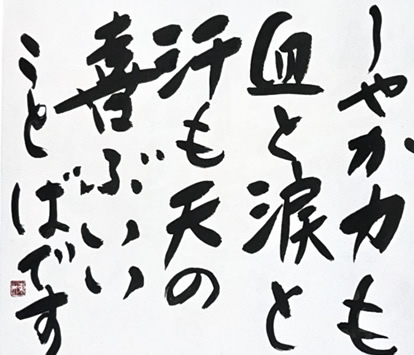 しやか力も
血と涙と
汗も天の
喜ぶいい
ことばです